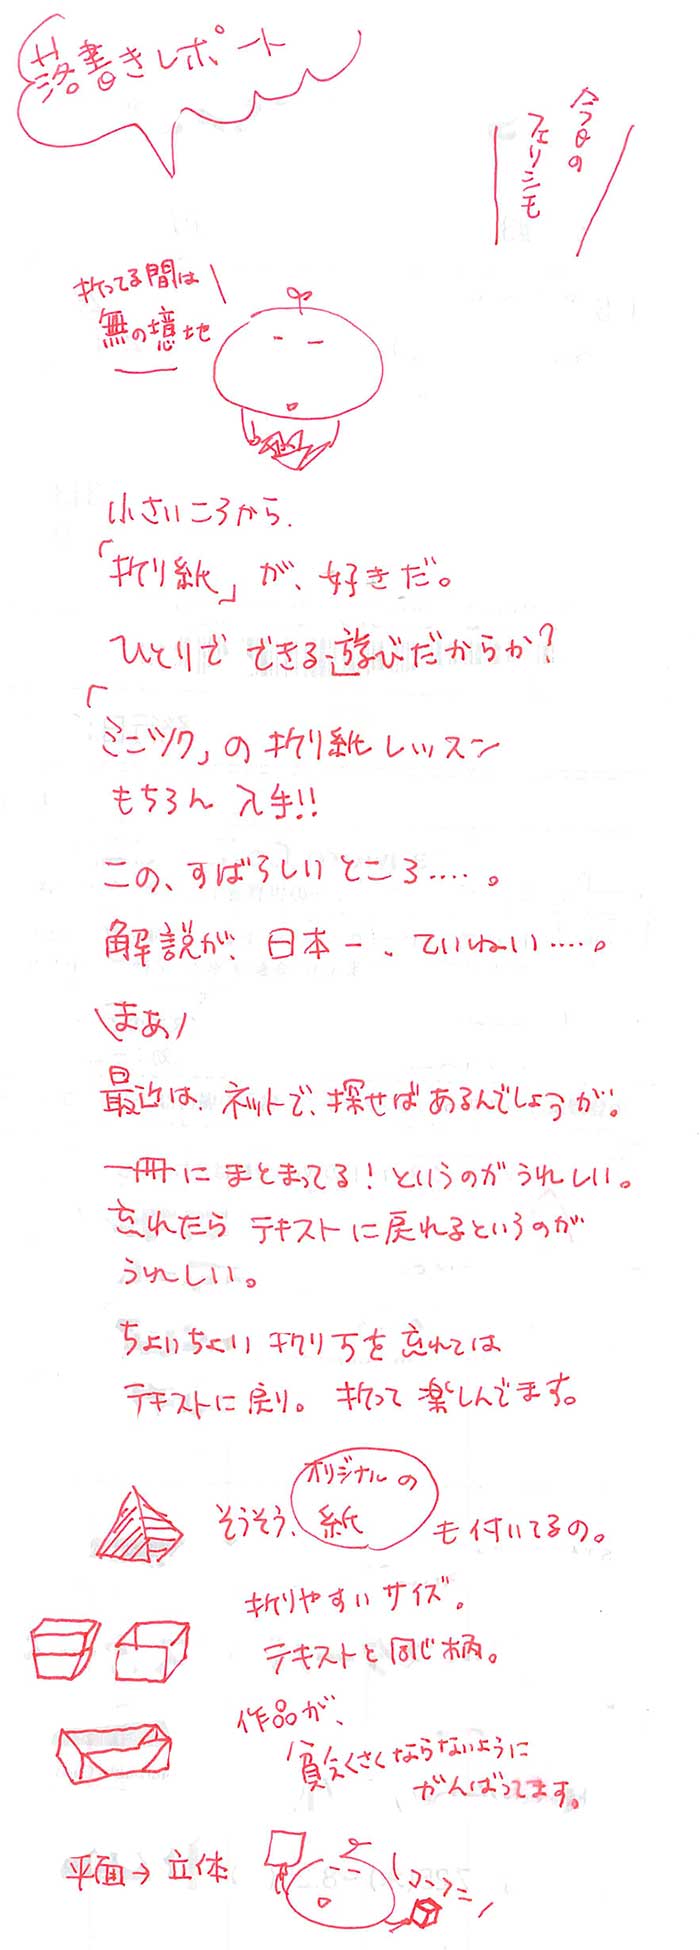 落書きレポート
今日の
フェリシモ
折ってる間は
無の境地
小さいころから、
「折り紙」が、好きだ。
ひとりで できる遊びだからか?
「ミニツク」の 折り紙 レッスン
もちろん 入手!!
この、すばらしいところ‥‥。
解説が、日本一、ていねい‥‥。
\まあ/
最近は、ネットで、探せばあるんでしょうが。
一冊に まとまってる! というのが うれしい。
忘れたら テキストに 戻れるというのが
うれしい。
ちょいちょい 折り方を 忘れては
テキストに戻り。 折って 楽しんでます。
そうそう、オリジナルの
紙 も 付いてるの。
折りやすい サイズ。
テキストと 同じ柄。
作品が、
貧乏くさくならないように
がんばってます。
平面→立体